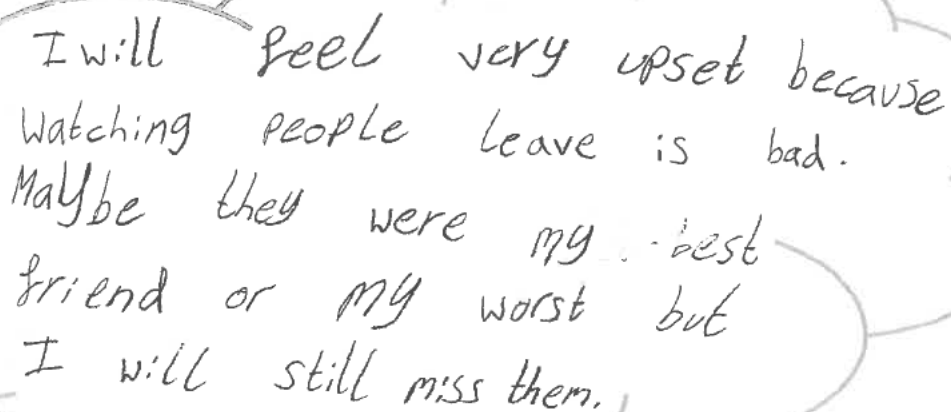 I will feel very upset because
watching people leave is bad.
Maybe they were my best
friend or my worst but
I will still miss them.